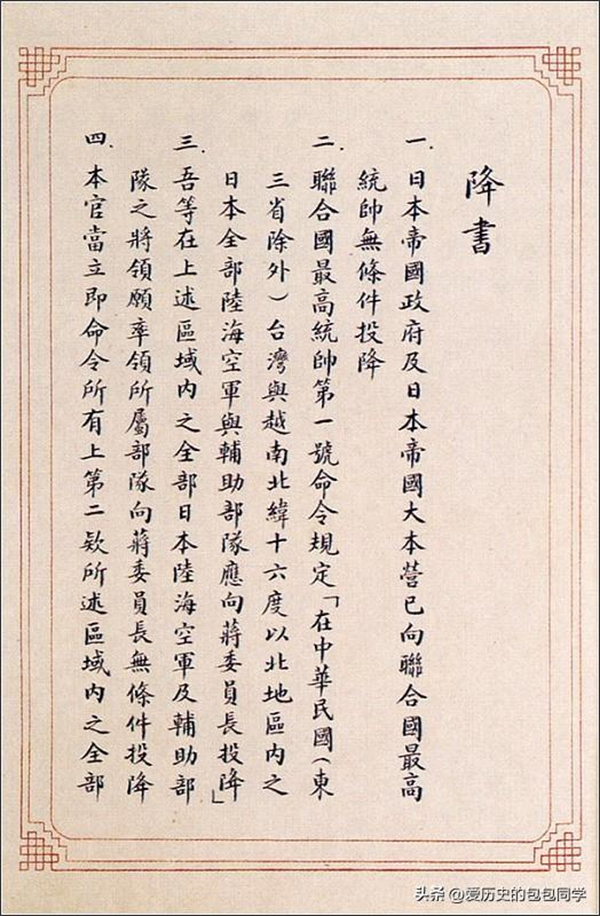 降書
一.日本帝國政府及日本帝國大本營已向聯合國最高
統帥無條件投降
二.聯合國最高統帥第一號命令規定「在中華民國(東
三省除外)台灣與越南北緯十六度以北地區內之
日本全部陸海空軍與輔助部隊應向蔣委員長投降」
三.吾等在上述區域內之全部日本陸海空軍及輔助部
隊之將領願率領所屬部隊向蔣委員長無條件投降
四.本官當立即命令所有上第二欵所述區域內之全部
头条 @爱历史的包包同学